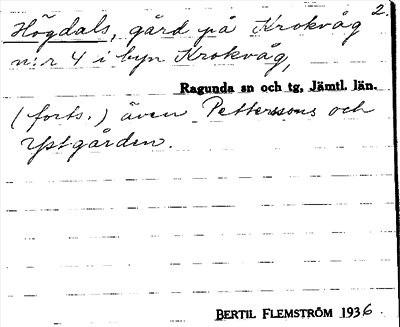 2.
Högdals, gård på Krokvåg
n:r 4 i byn Krokvåg,
Ragunda sn och tg, Jämtl. län.
(forts.) även Petterssons och
Ystgården.
BERTIL FLEMSTRÖM 1936.